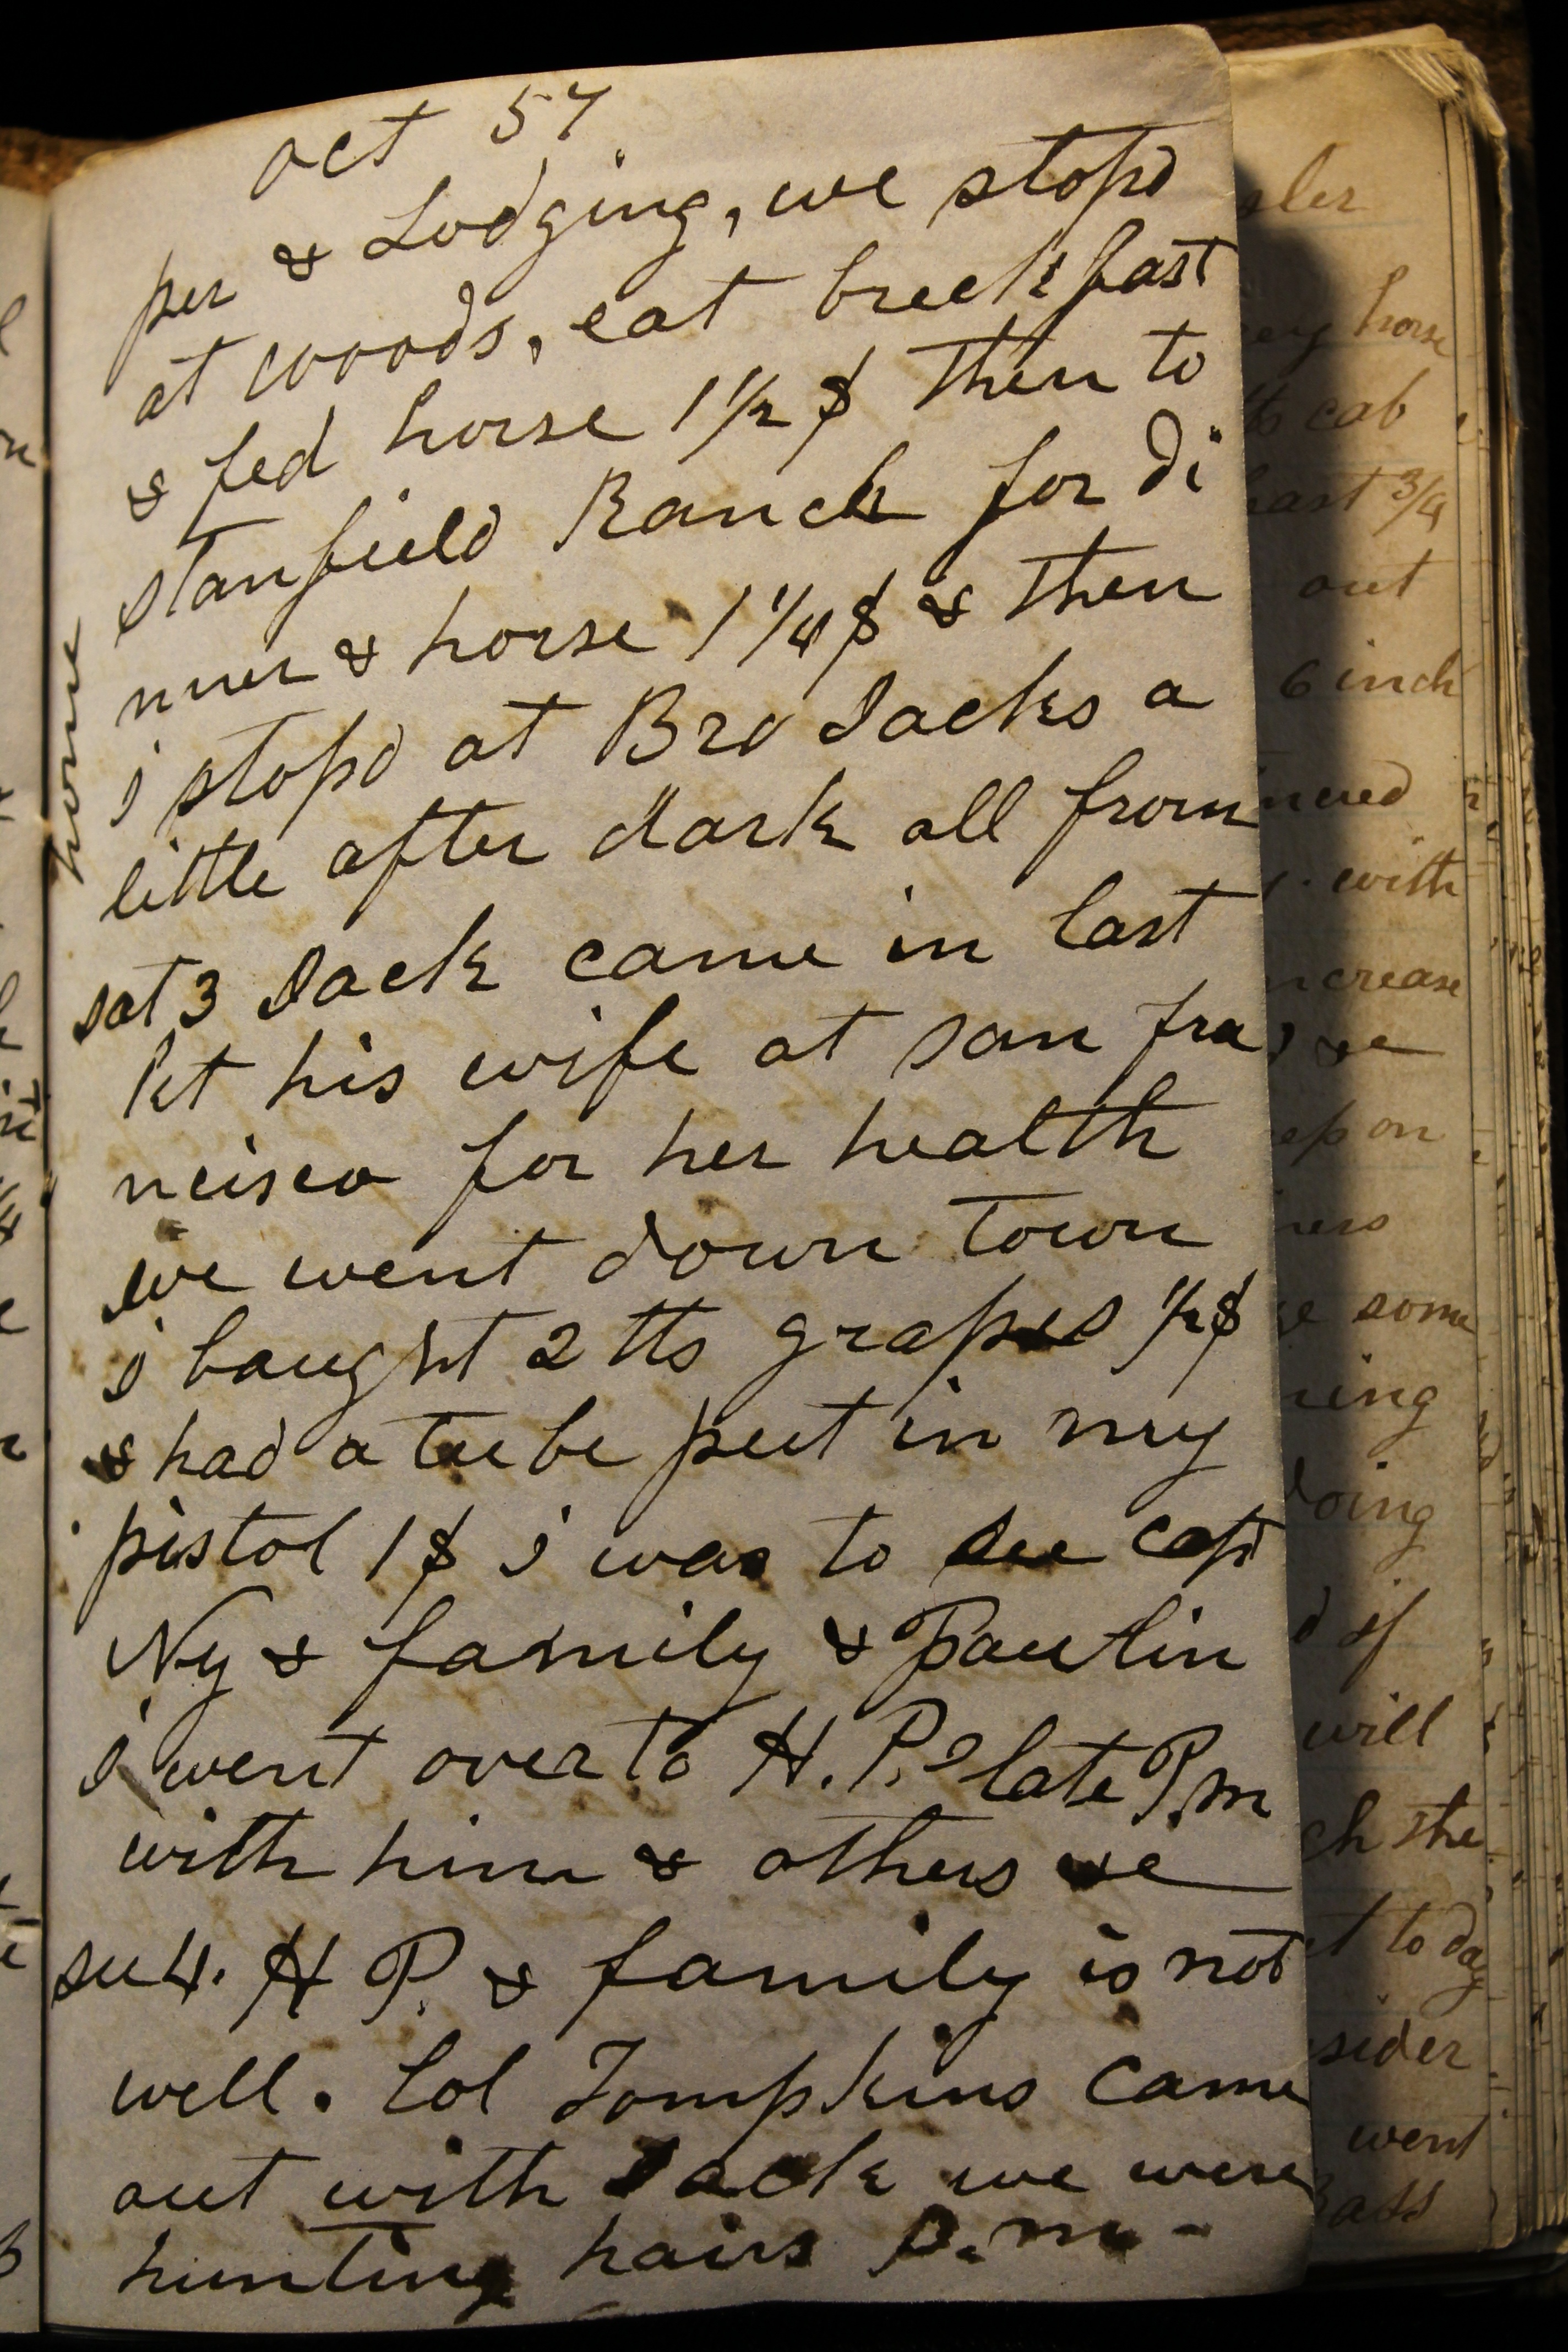 oct 57
per & Lodging, we stopd
at woods, eat breckfast
& fed horse 1 1/2 $ then to
stanfield Ranch for di
nner & horse 1 1/4 $ & then
i stopd at Bro Jacks a
little after dark all from
home
sat 3 Jack came in last
let his wife at san fra
ncisco for her health
we went down town
i baught 2 tts grapes 1/2 $
& had a tube put in my
pistol 1 $ i was to see capt
Ny & family & Paulin
i went over to H. P. late P.m
with him & others &c
su 4. H P. & family is not
well. Col Tompkins came
out with Jack we were
hunting hairs P.m -
sler
horse
cab
east 3/4
out
6 inch
with
ncrease
&c
ep on
some
doing
if
will
the
to day
sider
went